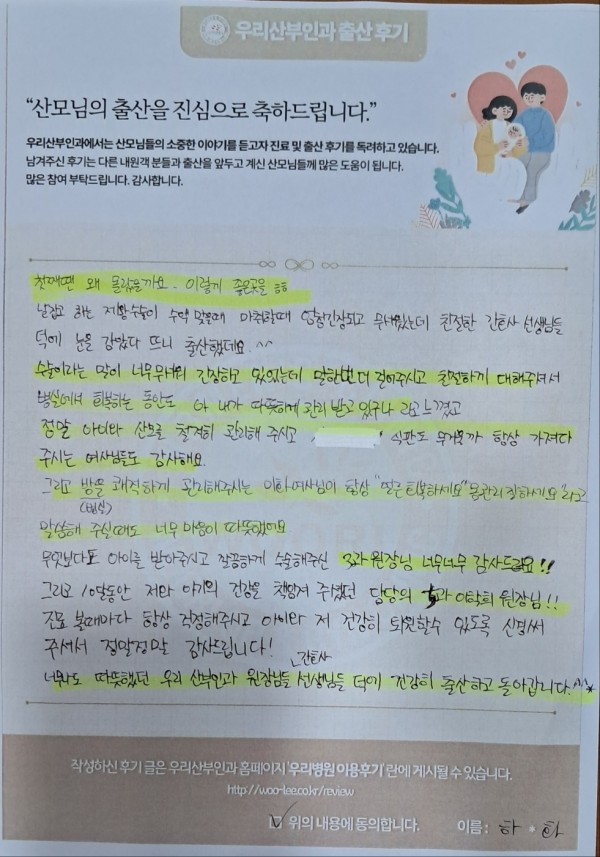 우리산부인과 출산 후기
“산모님의 출산을 진심으로 축하드립니다.”
우리산부인과에서는 산모님들의 소중한 이야기를 듣고자 진료 및 출산 후기를 독려하고 있습니다.
남겨주신 후기는 다른 내원객 분들과 출산을 앞두고 계신 산모님들께 많은 도움이 됩니다.
많은 참여 부탁드립니다. 감사합니다.
첫째땐 왜 몰랐을까요. 이렇게 좋은곳을 ㅎㅎ
날잡고 하는 제왕수술이 수액 맞을때 마취할때 엄청긴장되고 무서웠는데 친절한 간호사 선생님들
덕에 눈을 감았다 뜨니 출산했네요.^^
수술이라는 말이 너무무서워 긴장하고 있었는데 말한번 더 걸어주시고 친절하게 대해주셔서
병실에서 회복하는 동안도 아 내가 따뜻하게 관리 받고 있구나 라고 느꼈고
정말 아이와 산모를 철저히 관리해 주시고 식판도 무거울까 항상 가져다
주시는 여사님들도 감사해요
그리고 방을 쾌적하게 관리해주시는 여사님이 항상 "얼른 회복하세요" 몸관리 잘하세요"라고
(병실)
말씀해 주실때도 너무 마음이 따뜻했어요
무엇보다도 아이를 받아주시고 꼼꼼하게 수술해주신 3과 원장님 너무너무 감사드려요!!
그리고 10달동안 저와 아기의 건강을 책임져 주셨던 담당의 과 원장님!!
진료 볼때마다 항상 걱정해주시고 아이와 저 건강히 퇴원할수 있도록 신경써
주셔서 정말정말 감사드립니다!
간호사
너무나도 따뜻했던 우리 산부인과 원장님들 선생님들 덕에 건강히 출산하고 돌아갑니다.^^*
작성하신 후기 글은 우리산부인과 홈페이지 '우리병원 이용후기' 란에 게시될 수 있습니다.
http://woo-lee.co.kr/review
위의 내용에 동의합니다. 이름 : 하 * 화